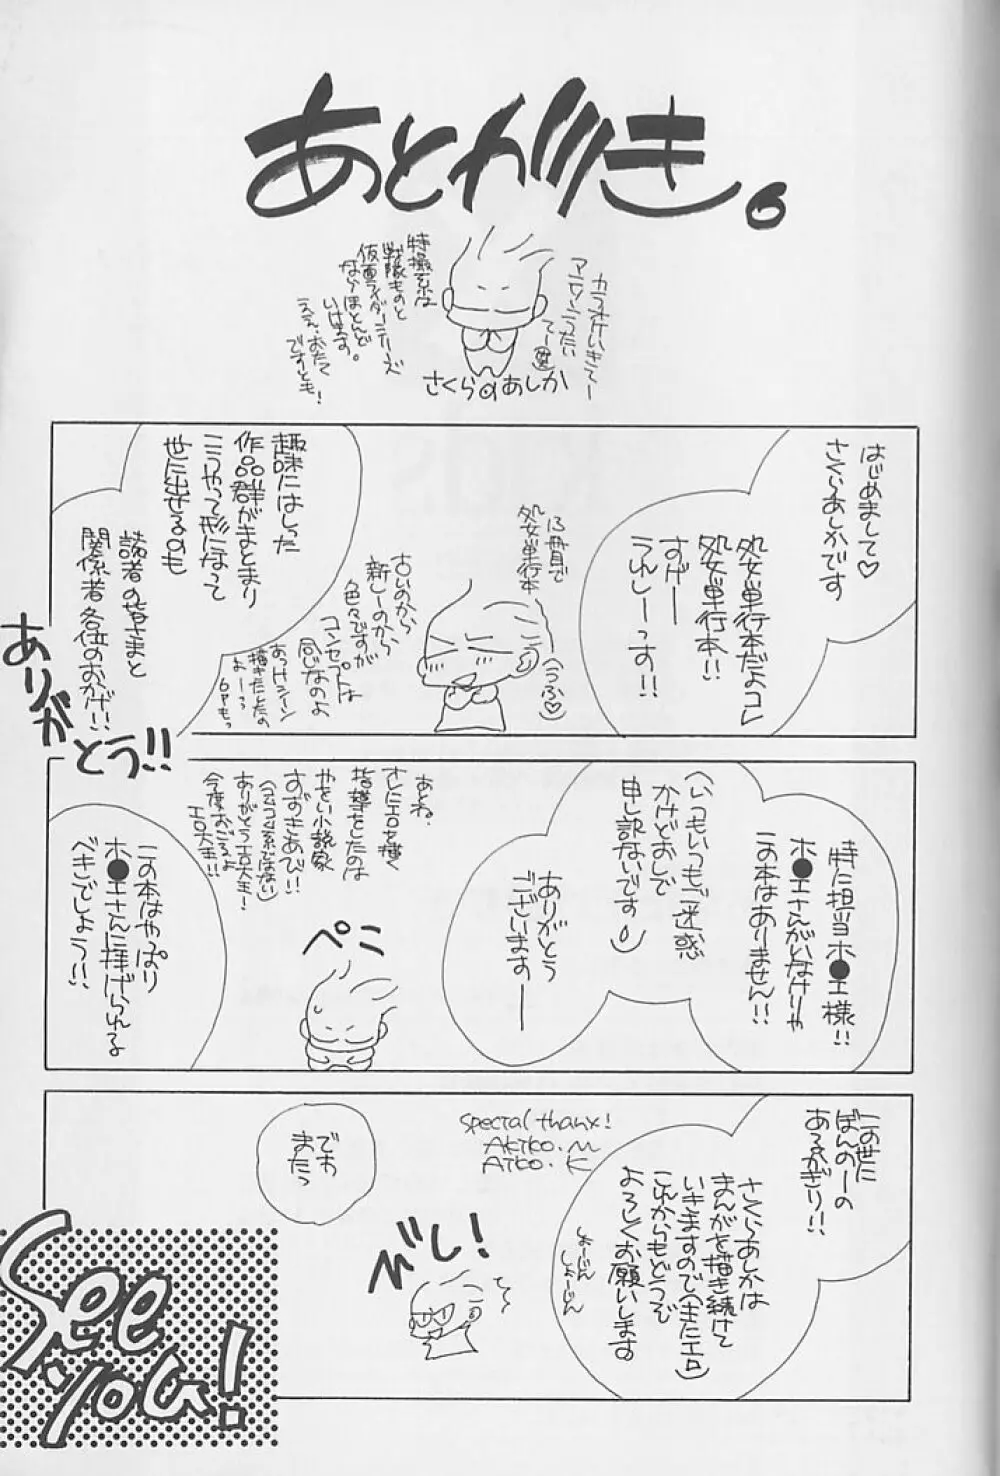 あとがき。
カラオケいきてー
アニソンうたい
てー
特撮系は
戦隊ものと
仮面ライダーシリーズ
ならほとんど
いけます。
ええ、おたく
ですとも!
さくらのあしか
はじめまして♡
さくらあしかです
処女単行本だよコレ
処女単行本!!
すげー
うれしーっす!!
13冊目で
処女単行本
(うふ♡)
古いのから
新しーのから
色々ですが
コンセプトは
同じなのよ
あっHシーン
描きたとたの
よーっ
趣味にはしった
作品群がまとまり
こうやって形になって
世に出せるのも
読者の皆さまと
関係者各位のおかげ!!
ありが
とう!!
特に担当ホ●エ様!!
ホ●エさんがいなけりゃ
この本はありません!!
(いつもいつもご迷惑
かけどおしで
申し訳ないです)
ありがとう
ございますー
あとね、
さくにエロを描く
指導をしたのは
やおい小説家
すずきあび!!
ありがとうエロ大王!
今度おごるよ
エロ大王!!
ペこ
この本はやっぱり
ホ●エさんに捧げられる
べきでしょう!!
この世に
ぼんのーの
あるかぎり!!
さくらあしかは
まんがを描き続けて
いきますので(またエロ)
これからもどうぞ
よろしくお願いします
しょーじん
しょーじん
Special thanx!
AKIKO.M
AIKO.K
ビし!
でわ
またっ
See
you!